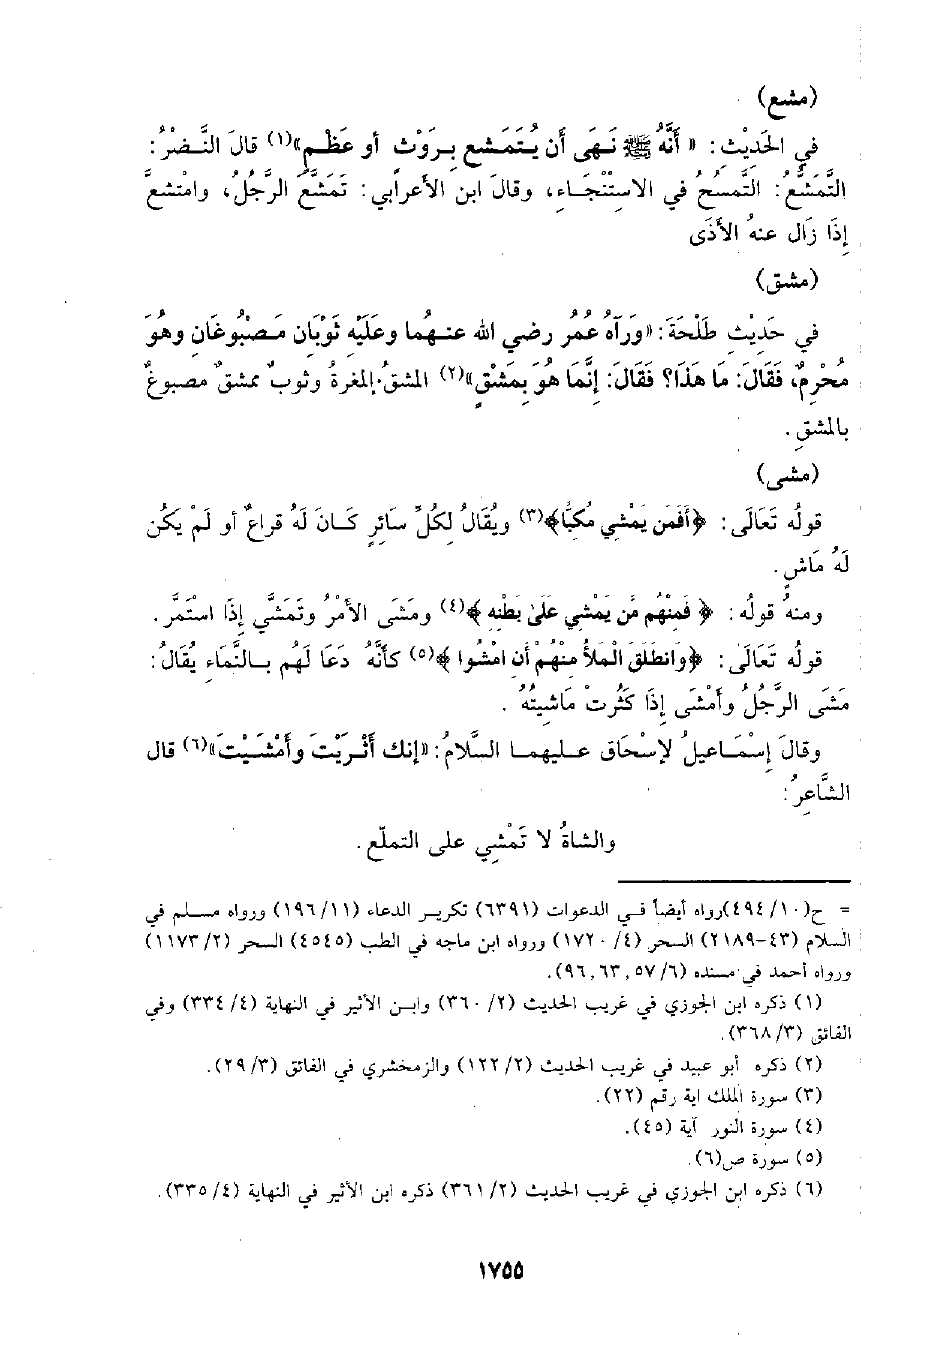 (مشع)
في الحَدِيْثِ: «أَنَّهُ ﷺ نَهَى أَن يُتَمَشع بِرَوْثٍ أو عَظْمٍ»(١) قالَ النَّضْرُ:
التَّمَشُّعُ: التَّمسُحُ في الاسْتِنْجَاءِ، وقالَ ابن الأعرابي: تَمَشَّعَ الرَّجُلُ، وامْتَشعَ
إِذَا زَال عنهُ الأذَى
(مشق)
في حَدِيْثِ طَلْحَةَ: «وَرَآهُ عُمُر رضي الله عنهُما وعَلَيْهِ ثَوْبَانِ مَصْبُوغَانِ وهُوَ
مُحْرِمٌ، فَقَالَ: مَا هَذَا؟ فَقَالَ: إنَّمَا هُوَ بِمَشْقٍ»(٢) المشقُ: المغرةُ وثوبٌ ممشقٌ مصبوغٌ
بالمشقِ.
(مشى)
قولُه تَعَالَى: ﴿أَفَمَن يَمْشِي مُكِبًّا﴾(٣) ويُقَالُ لِكُلِّ سَائرٍ كَانَ لَهُ قراعٌ أو لَمْ يَكُن
لَهُ مَاشٍ.
ومنهُ قولُه: ﴿فَمِنْهُم مَّن يَمْشِي عَلَىٰ بَطْنِهِ﴾(٤) ومَشَى الأَمْرُ وتَمَشَّي إِذَا استَمَّر.
قولُه تَعَالَى: ﴿وَانطَلَقَ الْمَلأُ مِنْهُمْ أَنِ امْشُوا﴾(٥) كأنَّهُ دَعَا لَهُم بالنَّمَاءِ يُقَالُ:
مَشَى الرَّجُلُ وأَمْشَى إِذَا كَثُرتْ مَاشِيتُهُ.
وقالَ إِسْمَاعيلُ لإسْحَاقِ عليهما السَّلامُ: «إنك أَثْرَيْتَ وأَمْشَيْتَ»(٦) قال
الشَّاعِرُ:
والشاةُ لا تَمْشِي على التملّع.
= ح(١٠/٤٩٤)رواه أيضاً في الدعوات (٦٣٩١) تكرير الدعاء (١١/١٩٦) ورواه مسلم في
السلام (٤٣-٢١٨٩) السحر (٤/١٧٢٠) ورواه ابن ماجه في الطب (٤٥٤٥) السحر (٢/١١٧٣)
ورواه أحمد في مسنده (٦/٥٧, ٦٣, ٩٦).
(١) ذكره ابن الجوزي في غريب الحديث (٢/٣٦٠) وابن الأثير في النهاية (٤/٣٣٤) وفي
الفائق (٣/٣٦٨).
(٢) ذكره أبو عبيد في غريب الحديث (٢/١٢٢) والزمخشري في الفائق (٣/٢٩).
(٣) سورة الملك اية رقم (٢٢).
(٤) سورة النور آية (٤٥).
(٥) سورة ص(٦).
(٦) ذكره ابن الجوزي في غريب الحديث (٢/٣٦١) ذكره ابن الأثير في النهاية (٤/٣٣٥).
١٧٥٥